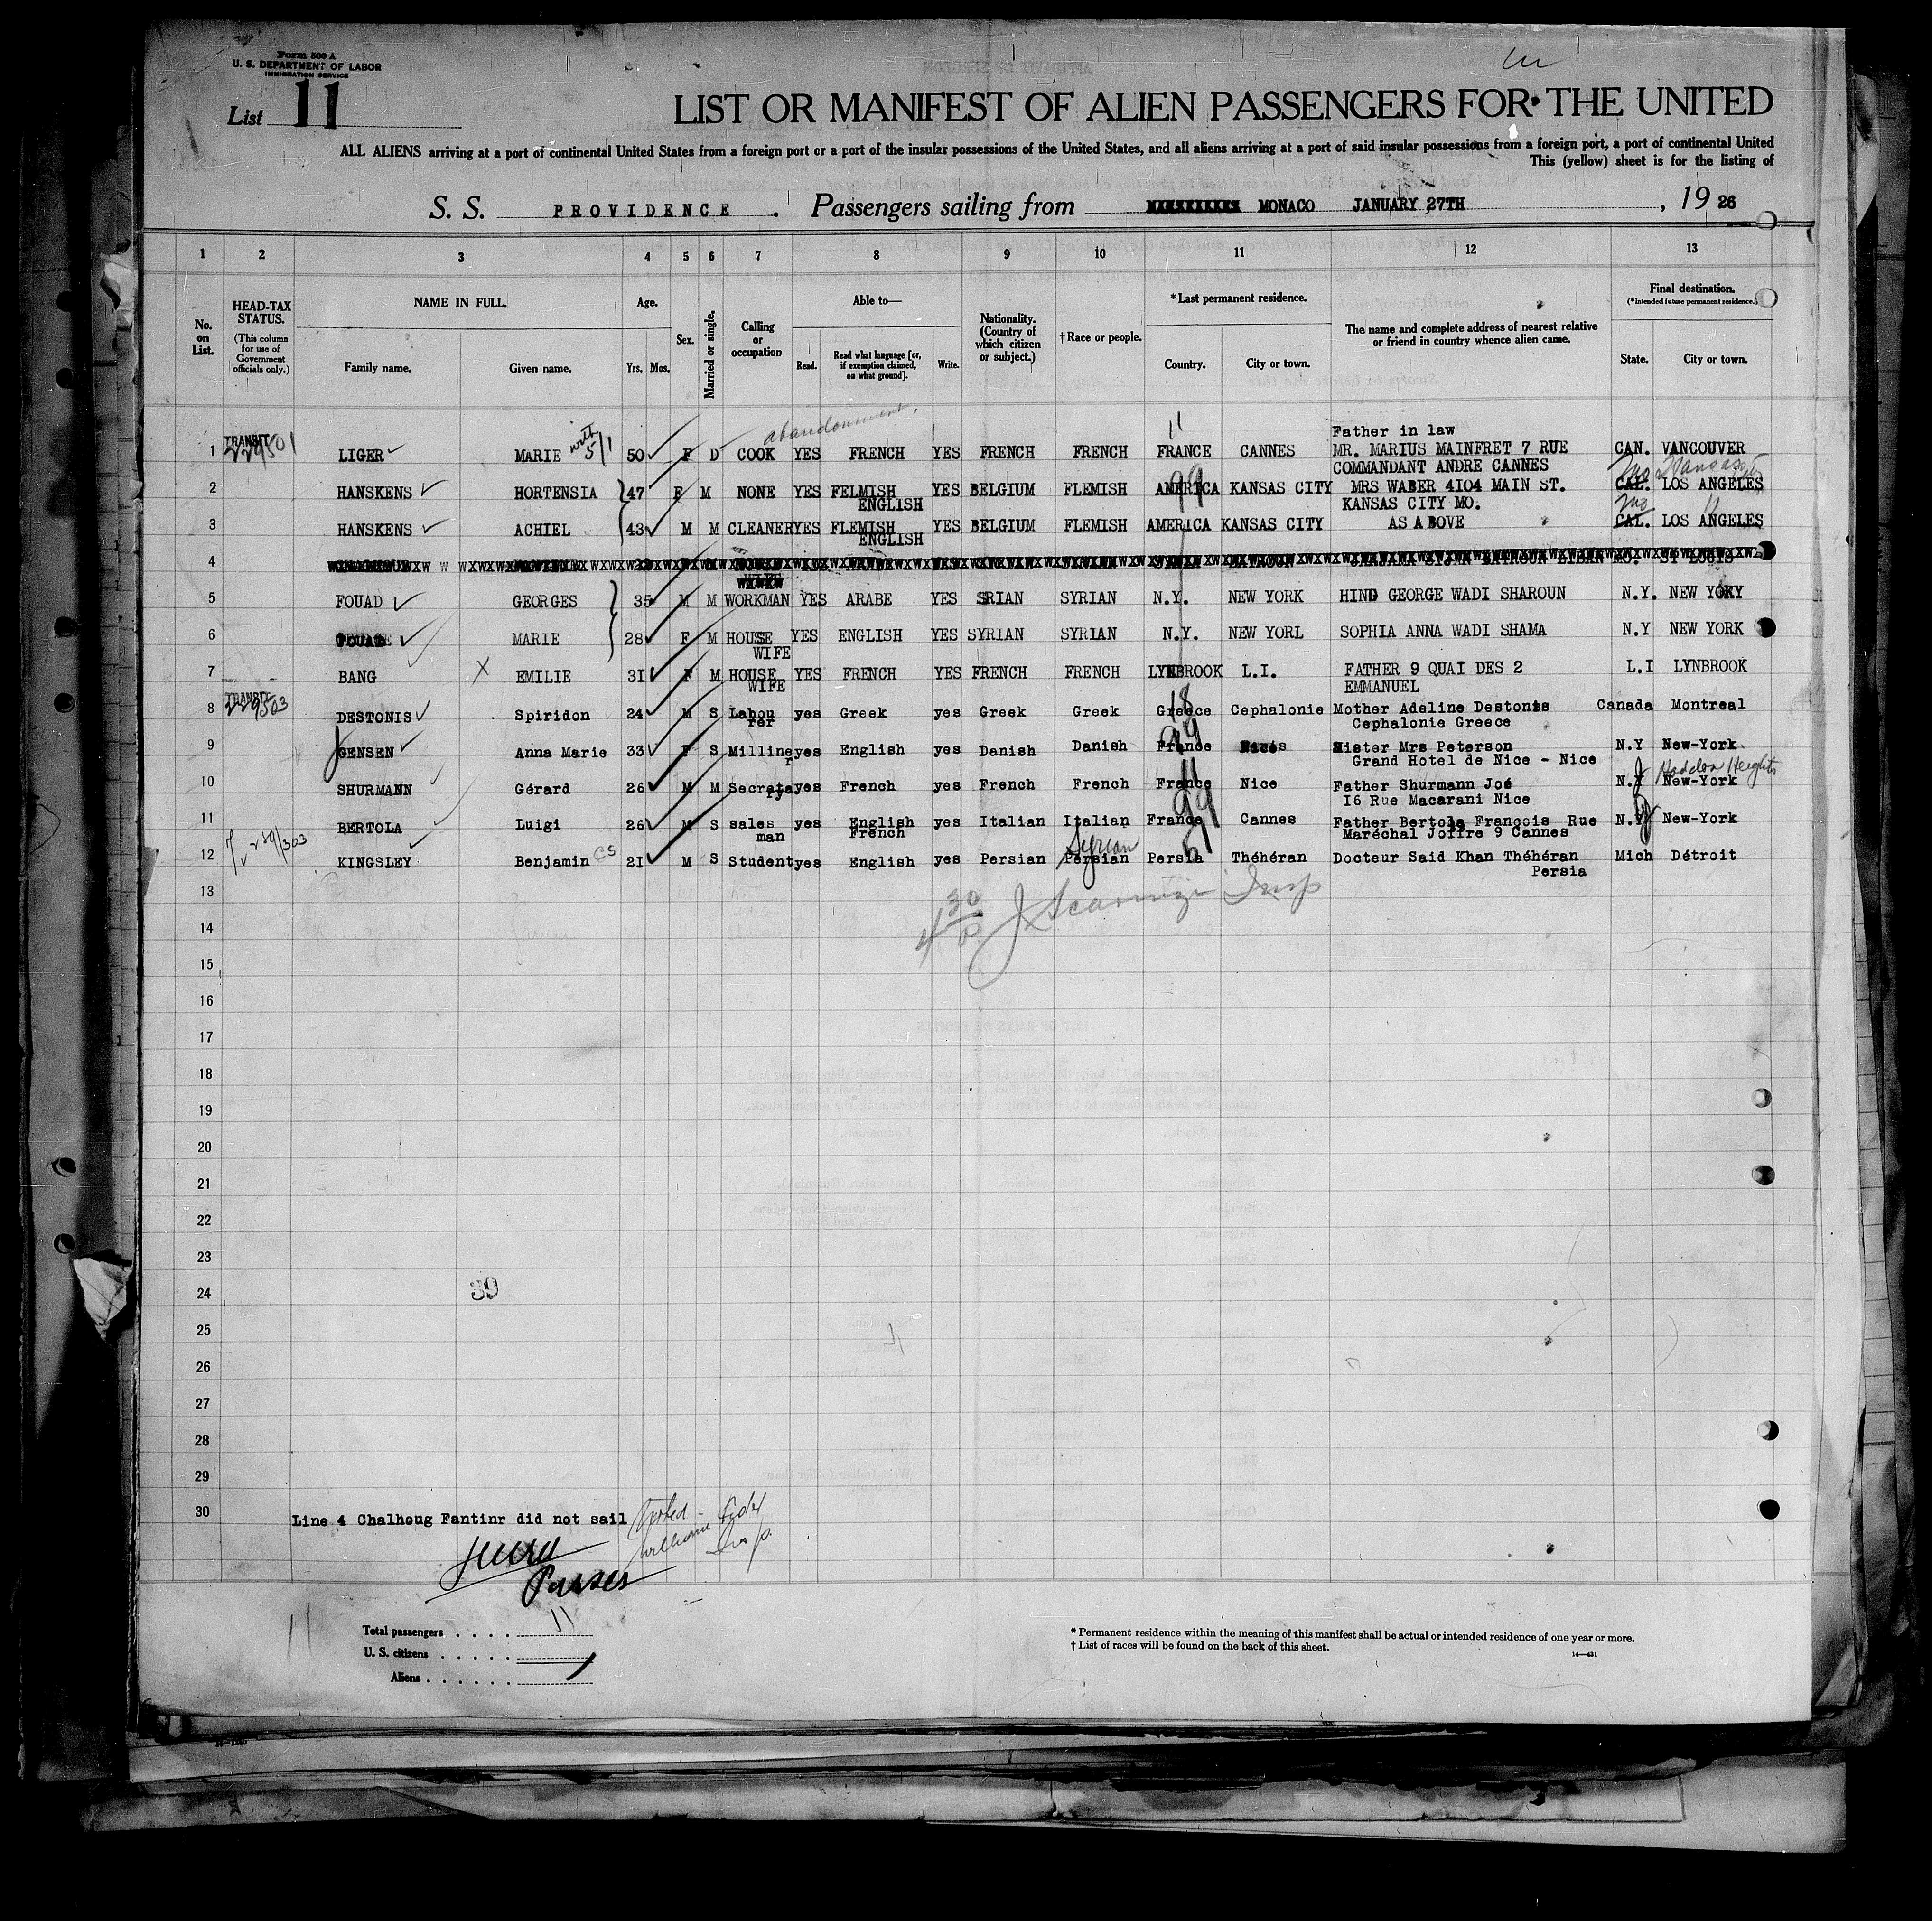 Form 500 A
U. S. DEPARTMENT OF LABOR
IMMIGRATION SERVICE
List 11
LIST OR MANIFEST OF ALIEN PASSENGERS FOR THE UNITED
ALL ALIENS arriving at a port of continental United States from a foreign port or a port of the insular possessions of the United States, and all aliens arriving at a port of said insular possessions from a foreign port, a port of continental United
This (yellow) sheet is for the listing of
S. S. PROVIDENCE . Passengers sailing from MONACO JANUARY 27TH , 19 26
1 2 3 4 5 6 7 8 9 10 11 12 13
No. on List.
HEAD-TAX STATUS.
(This column for use of Government officials only.)
NAME IN FULL.
Family name. Given name.
Age.
Yrs. Mos.
Sex.
Married or single.
Calling or occupation
Able to—
Read. Read what language [or, if exemption claimed, on what ground]. Write.
Nationality. (Country of which citizen or subject.)
† Race or people.
*Last permanent residence.
Country. City or town.
The name and complete address of nearest relative or friend in country whence alien came.
Final destination.
(*Intended future permanent residence.)
State. City or town.
abandonment.
11
TRANSIT Father in law
1 229501 LIGER MARIE 5/1 50 F D COOK YES FRENCH YES FRENCH FRENCH FRANCE CANNES MR. MARIUS MAINFRET 7 RUE CAN. VANCOUVER
COMMANDANT ANDRE CANNES
2 HANSKENS HORTENSIA 47 F M NONE YES FELMISH YES BELGIUM FLEMISH AMERICA KANSAS CITY MRS WABER 4104 MAIN ST. CAL. LOS ANGELES
ENGLISH 99 KANSAS CITY MO. Mo
3 HANSKENS ACHIEL 43 M M CLEANER YES FLEMISH YES BELGIUM FLEMISH AMERICA KANSAS CITY AS ABOVE CAL. LOS ANGELES
ENGLISH
4 MO. ST LOUIS
5 FOUAD GEORGES 35 M M WORKMAN YES ARABE YES SRIAN SYRIAN N.Y. NEW YORK HIND GEORGE WADI SHAROUN N.Y. NEW YOKY
6 FOUAD MARIE 28 F M HOUSE YES ENGLISH YES SYRIAN SYRIAN N.Y. NEW YORL SOPHIA ANNA WADI SHAMA N.Y NEW YORK
WIFE
7 BANG X EMILIE 31 F M HOUSE YES FRENCH YES FRENCH FRENCH LYNBROOK L.I. FATHER 9 QUAI DES 2 L.I LYNBROOK
WIFE EMMANUEL
TRANSIT 18
8 229503 DESTONIS Spiridon 24 M S Labou yes Greek yes Greek Greek Greece Cephalonie Mother Adeline Destonis Canada Montreal
rer Cephalonie Greece
99
9 JENSEN Anna Marie 33 F S Milline yes English yes Danish Danish France Sister Mrs Peterson N.Y New-York
r Grand Hotel de Nice - Nice
11 Haddon Heights
10 SHURMANN Gérard 26 M M Secreta yes French yes French French France Nice Father Shurmann Joé N.Y New-York
ry 16 Rue Macarani Nice
99
11 BERTOLA Luigi 26 M S sales yes English yes Italian Italian France Cannes Father Bertola François Rue N.Y New-York
man French Maréchal Joffre 9 Cannes
Syrian
12 229/303 KINGSLEY Benjamin CS 21 M S Student yes English yes Persian Persian Persia Théhéran Docteur Said Khan Théhéran Mich Détroit
Persia
13
14
15
16
17
18
19
20
21
22
23
24 39
25
26
27
28
29
30
Line 4 Chalhoug Fantinr did not sail
Purser
Total passengers . . . . 11
U. S. citizens . . . . .
Aliens . . . . . .
11
* Permanent residence within the meaning of this manifest shall be actual or intended residence of one year or more.
† List of races will be found on the back of this sheet.
14—431